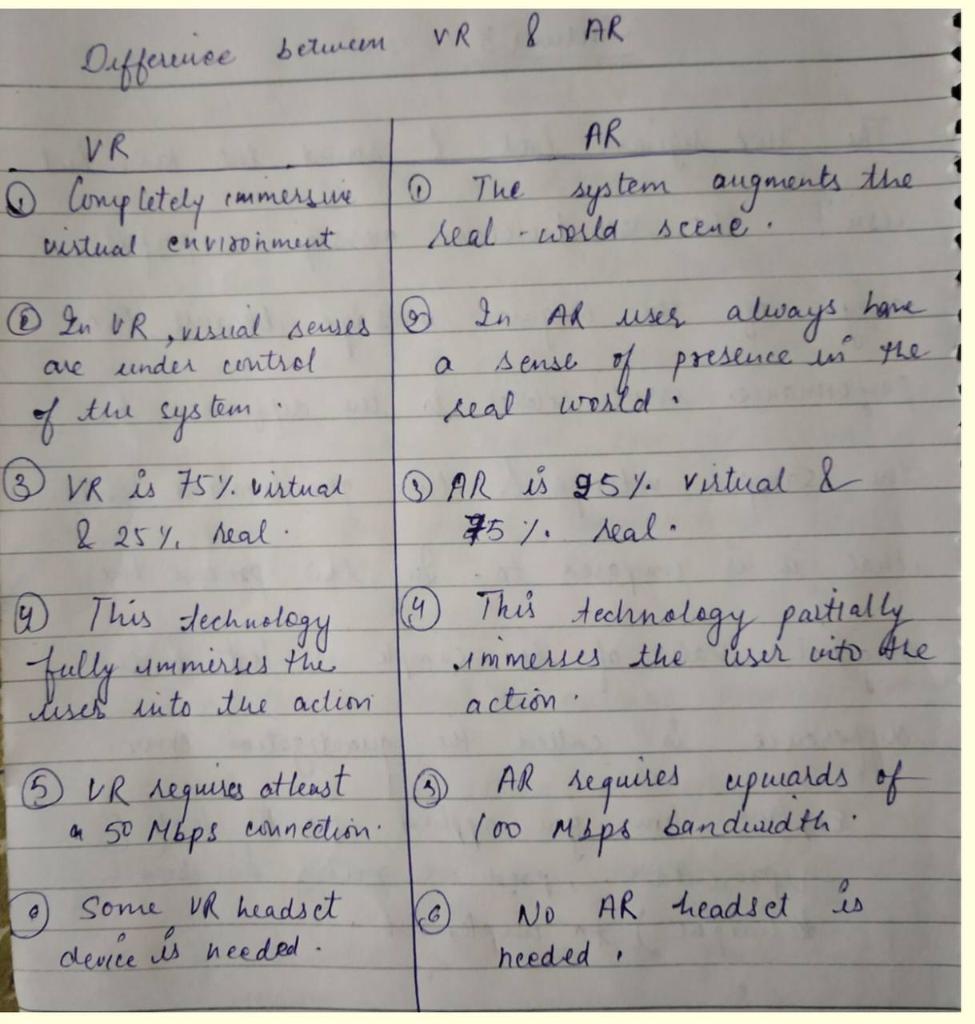 Difference between VR & AR
VR
① Completely immersive
virtual environment
② In VR, visual senses
are under control
of the system.
③ VR is 75% virtual
& 25% real.
④ This technology
fully immerses the
user into the action
⑤ VR requires atleast
a 50 Mbps connection.
⑥ Some VR headset
device is needed.
AR
① The system augments the
real-world scene.
② In AR user always have
a sense of presence in the
real world.
③ AR is 25% virtual &
75% real.
④ This technology partially
immerses the user into the
action.
⑤ AR requires upwards of
100 Mbps bandwidth.
⑥ No AR headset is
needed.